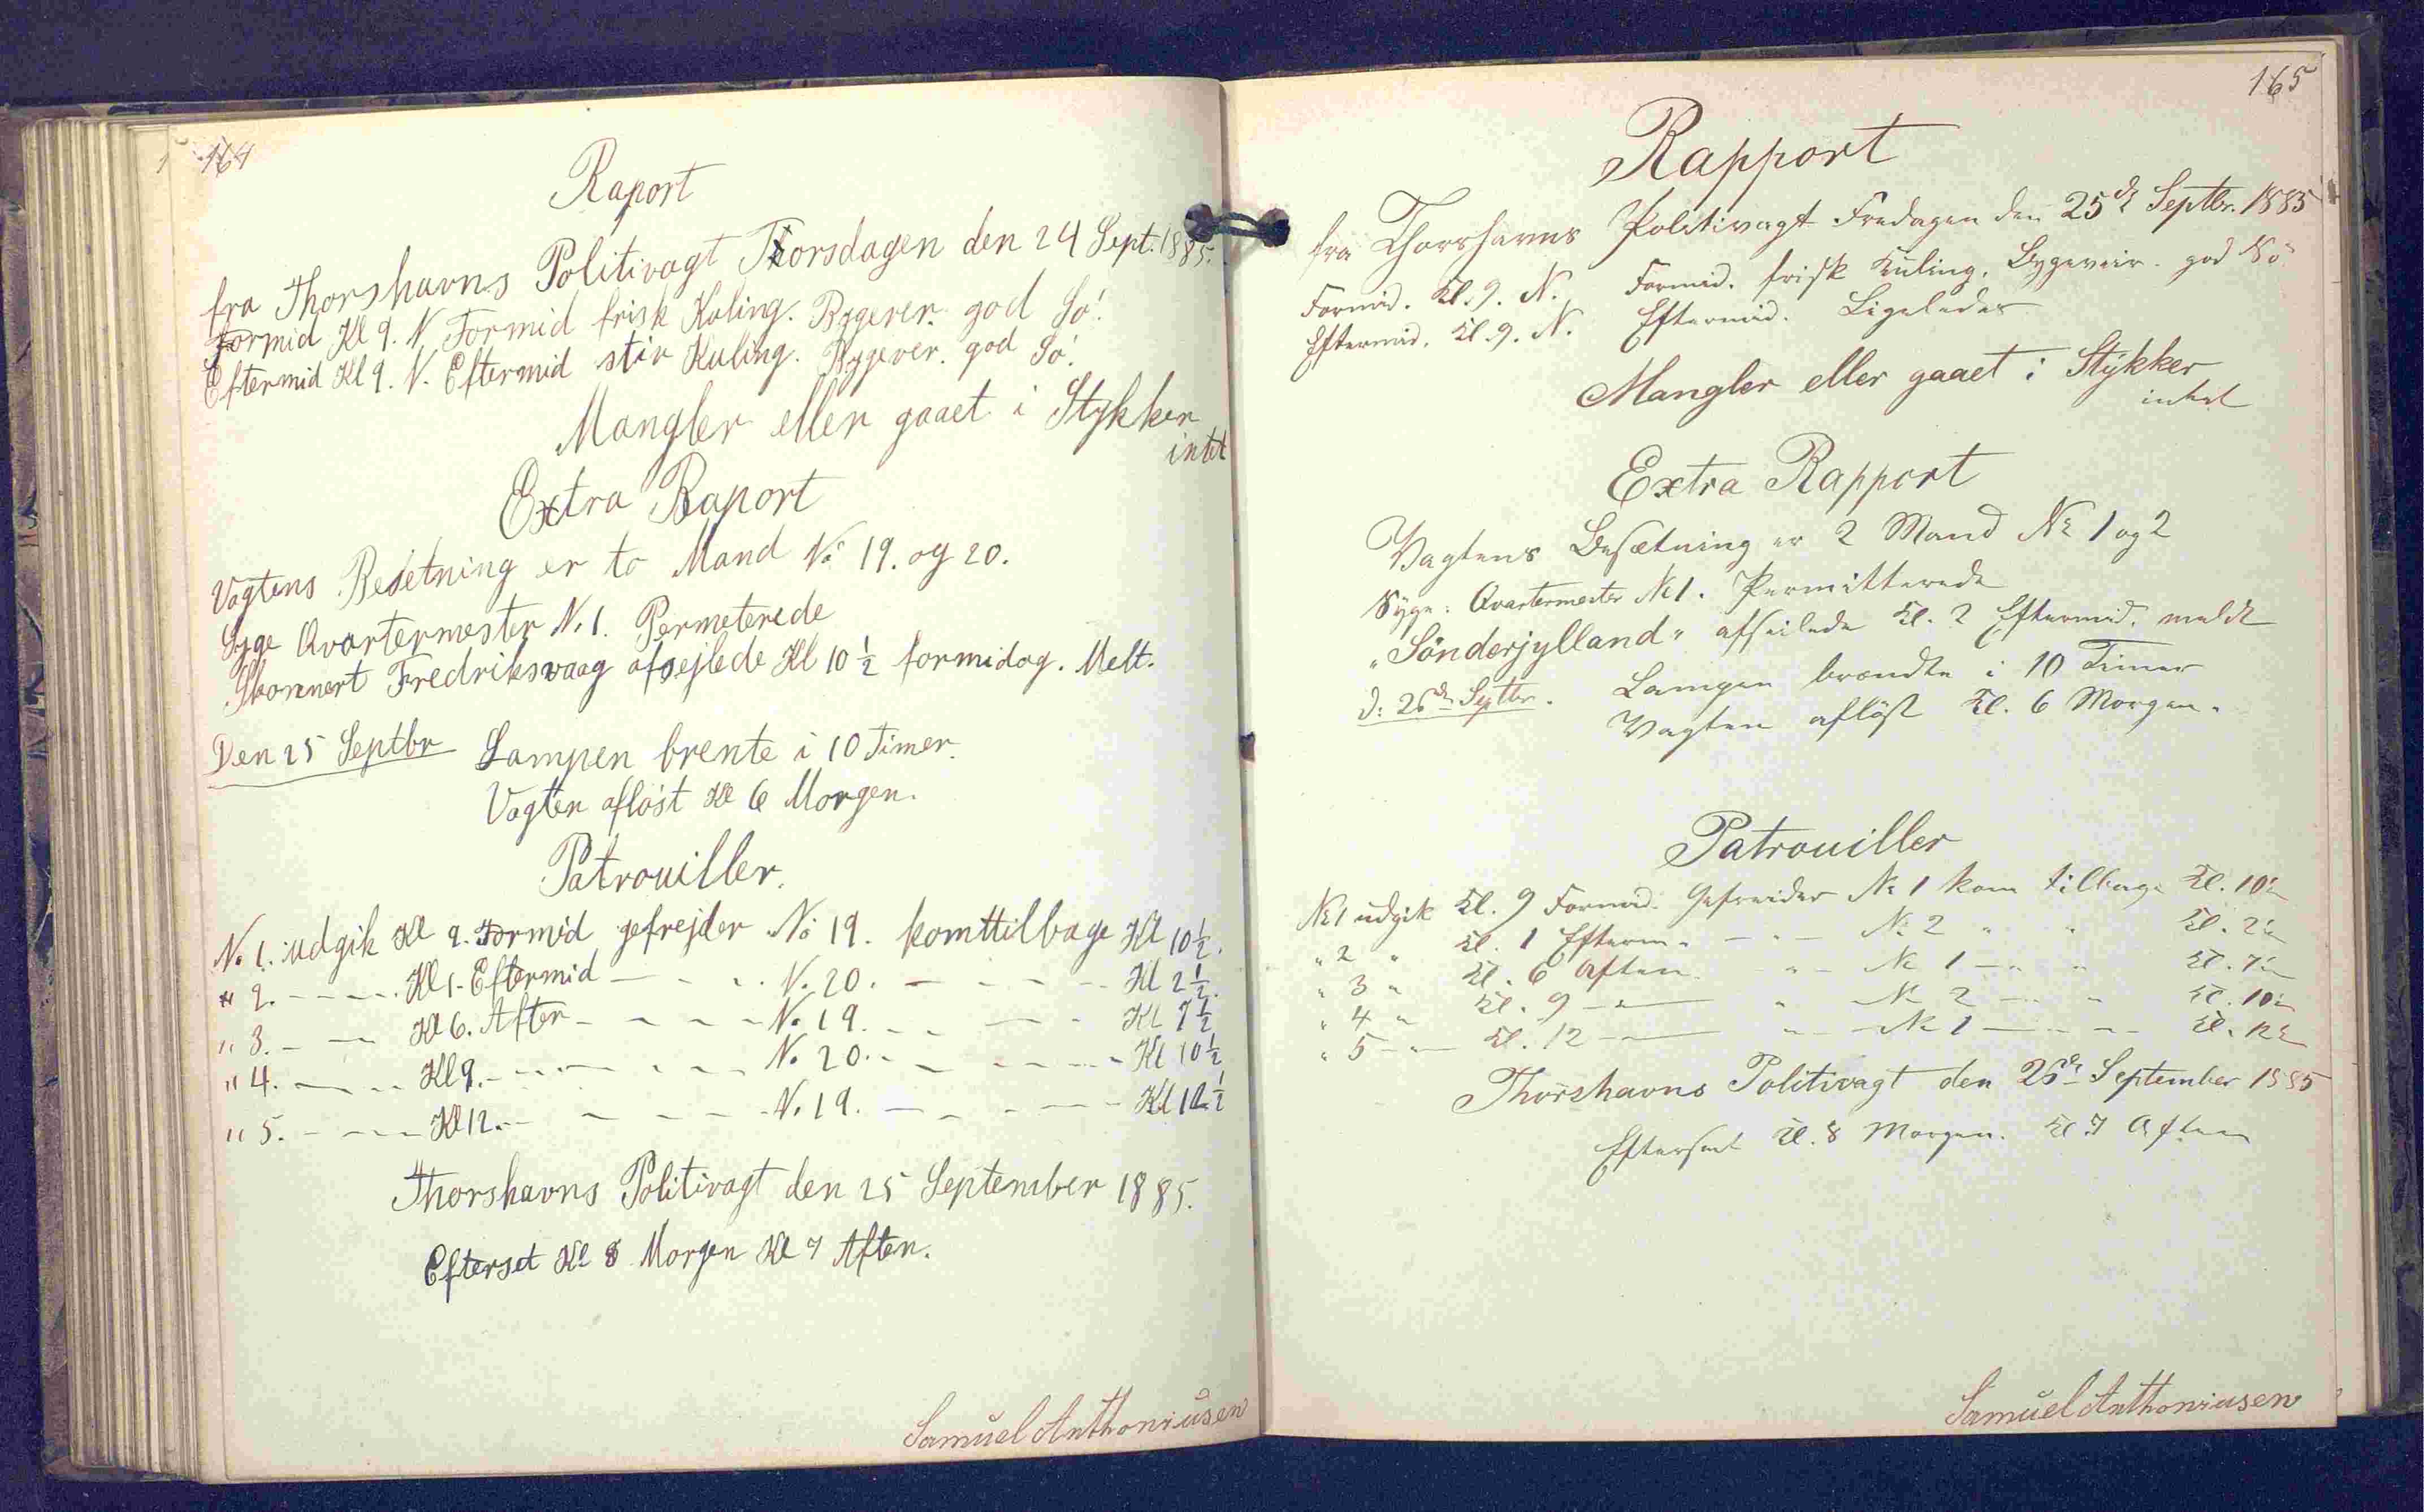 164
Raport
fra Thorshavns Politivagt Thorsdagen den 24 Sept. 1885.
Formid Kl 9. N. Formid frisk Kuling. Bygever. god Sö.
Eftermid Kl 9. N. Eftermid stiv Kuling. Bygever. god Sö.
Mangler eller gaaet i Stykker
intet
Extra Raport
Vagtens Besetning er to Mand No 19. og 20.
Syge Qvartermester N. 1. Permeterede
Skonnert Fredriksvaag afsejlede Kl 10 1/2 formidag. Melt.
Den 25 Septbr Lampen brente i 10 Timer.
Vagten afløst Kl 6 Morgen.
Patrouiller.
No 1. udgik Kl 9. Formid gefrejder No 19. kom tilbage Kl 10 1/2.
" 2. - - - - Kl 1 - Eftermid - - - - N. 20. - - - - Kl 2 1/2.
" 3. - - - Kl 6. Aften - - - - No 19. - - - - Kl 7 1/2
" 4. - - - Kl 9. - - - - - No 20. - - - - - Kl 10 1/2
" 5. - - - - Kl 12. - - - - - N. 19. - - - - Kl 12 1/2
Thorshavns Politivagt den 25 September 1885.
Efterset Kl 8 Morgen Kl 7 Aften.
Samuel Anthoniusen
165
Rapport
fra Thorshavns Politivagt Fredagen den 25de Septbr. 1885
Formid. Kl. 9. N. Formid. frisk Kuling, Bygeveir. god Sö.
Eftermid. Kl. 9. N. Eftermid. Ligeledes
Mangler eller gaaet i Stykker
intet
Extra Rapport
Vagtens Besætning er 2 Mand No 1 og 2
Syge: Qvartermester No 1. Permitterede
"Sönderjylland" afseilede Kl. 2 Eftermid. meldt
D: 26de Septbr. Lampen brændte i 10 Timer
Vagten aflöst Kl. 6 Morgen.
Patrouiller
No 1 udgik Kl. 9 Formid. Gefreider No 1 kom tilbage Kl. 10 1/2
" 2 " Kl. 1 Efterm. - " - No 2 " " Kl. 2 1/2
" 3 " Kl. 6 Aften. " - No 1 - " " Kl. 7 1/2
" 4 " Kl. 9 - " - " - No 2 - " " Kl. 10 1/2
" 5 - " - Kl. 12 - " - " - No 1 - " - Kl. 12 1/2
Thorshavns Politivagt den 26de September 1885
Efterset Kl. 8 Morgen. Kl 7 Aften
Samuel Anthoniusen